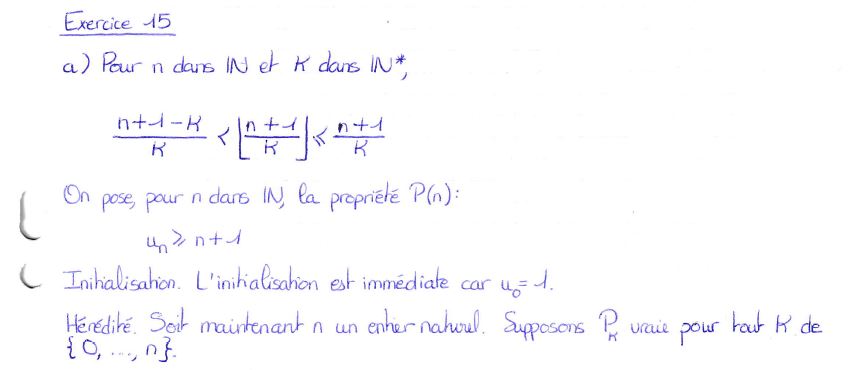 Exercice 15
a) Pour n dans ℕ et K dans ℕ*,
(n+1-K)/K < ⌊(n+1)/K⌋ ≤ (n+1)/K
On pose, pour n dans ℕ, la propriété P(n):
uₙ ≥ n+1
Initialisation. L'initialisation est immédiate car u₀ = 1.
Hérédité. Soit maintenant n un entier naturel. Supposons P_K vraie pour tout K de
{0, ..., n}.